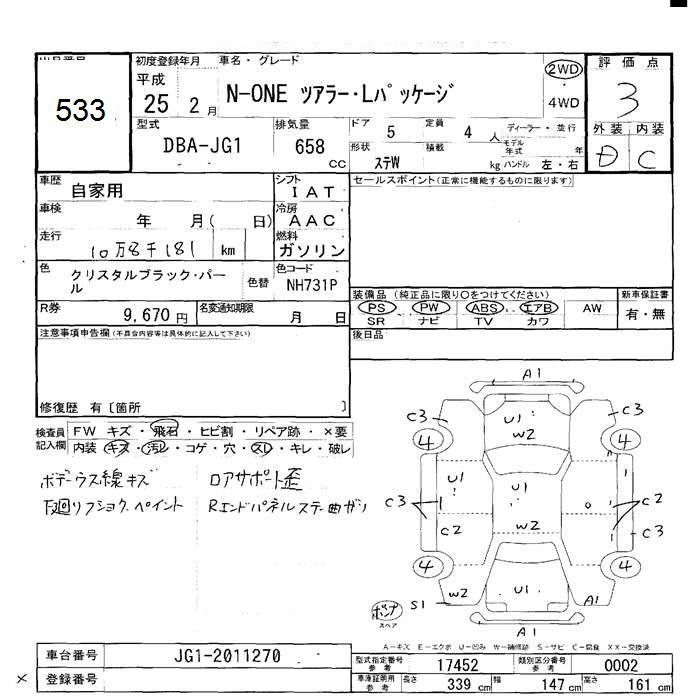 出品番号
533
初度登録年月
平成
25 2 月
車名・グレード
N-ONE ツアラー・Lパッケージ
2WD
・
4WD
評価点
3
型式
DBA-JG1
排気量
658
cc
ドア
5
定員
4
人
ディーラー・並行
形状
ステW
積載
kg
モデル年式
年
ハンドル 左・右
外装 内装
D C
車歴
自家用
シフト
IAT
セールスポイント(正常に機能するものに限ります)
車検
年 月( 日)
冷房
AAC
走行
10万8千181 km
燃料
ガソリン
色
クリスタルブラック・パール
色替
色コード
NH731P
R券
9,670 円
名変通知期限
月 日
装備品 (純正品に限り○をつけてください)
PS PW ABS エアB AW
SR ナビ TV カワ
新車保証書
有・無
注意事項申告欄(不具合内容等は具体的に記入して下さい)
後日品
修復歴 有〔箇所 〕
検査員
記入欄
FW キズ・飛石・ヒビ割・リペア跡・×要
内装 キズ・汚レ・コゲ・穴・スレ・キレ・破レ
ボデーウス線キズ
下廻リフショク、ペイント
ロアサポート歪
Rエンドパネルステー曲ガリ
A1
C3
C3
U1
W2
4
4
U1
U1
C3
C2
C2
C3
W2
4
4
W2
U1
S1
A1
A1
パンク
スペア
A-キズ E-エクボ U-凹み W-補修跡 S-サビ C-腐食 XX-交換済
車台番号
JG1-2011270
登録番号
×
型式指定番号
参考
17452
類別区分番号
参考
0002
車庫証明用
参考
長さ
339 cm
幅
147 cm
高さ
161 cm